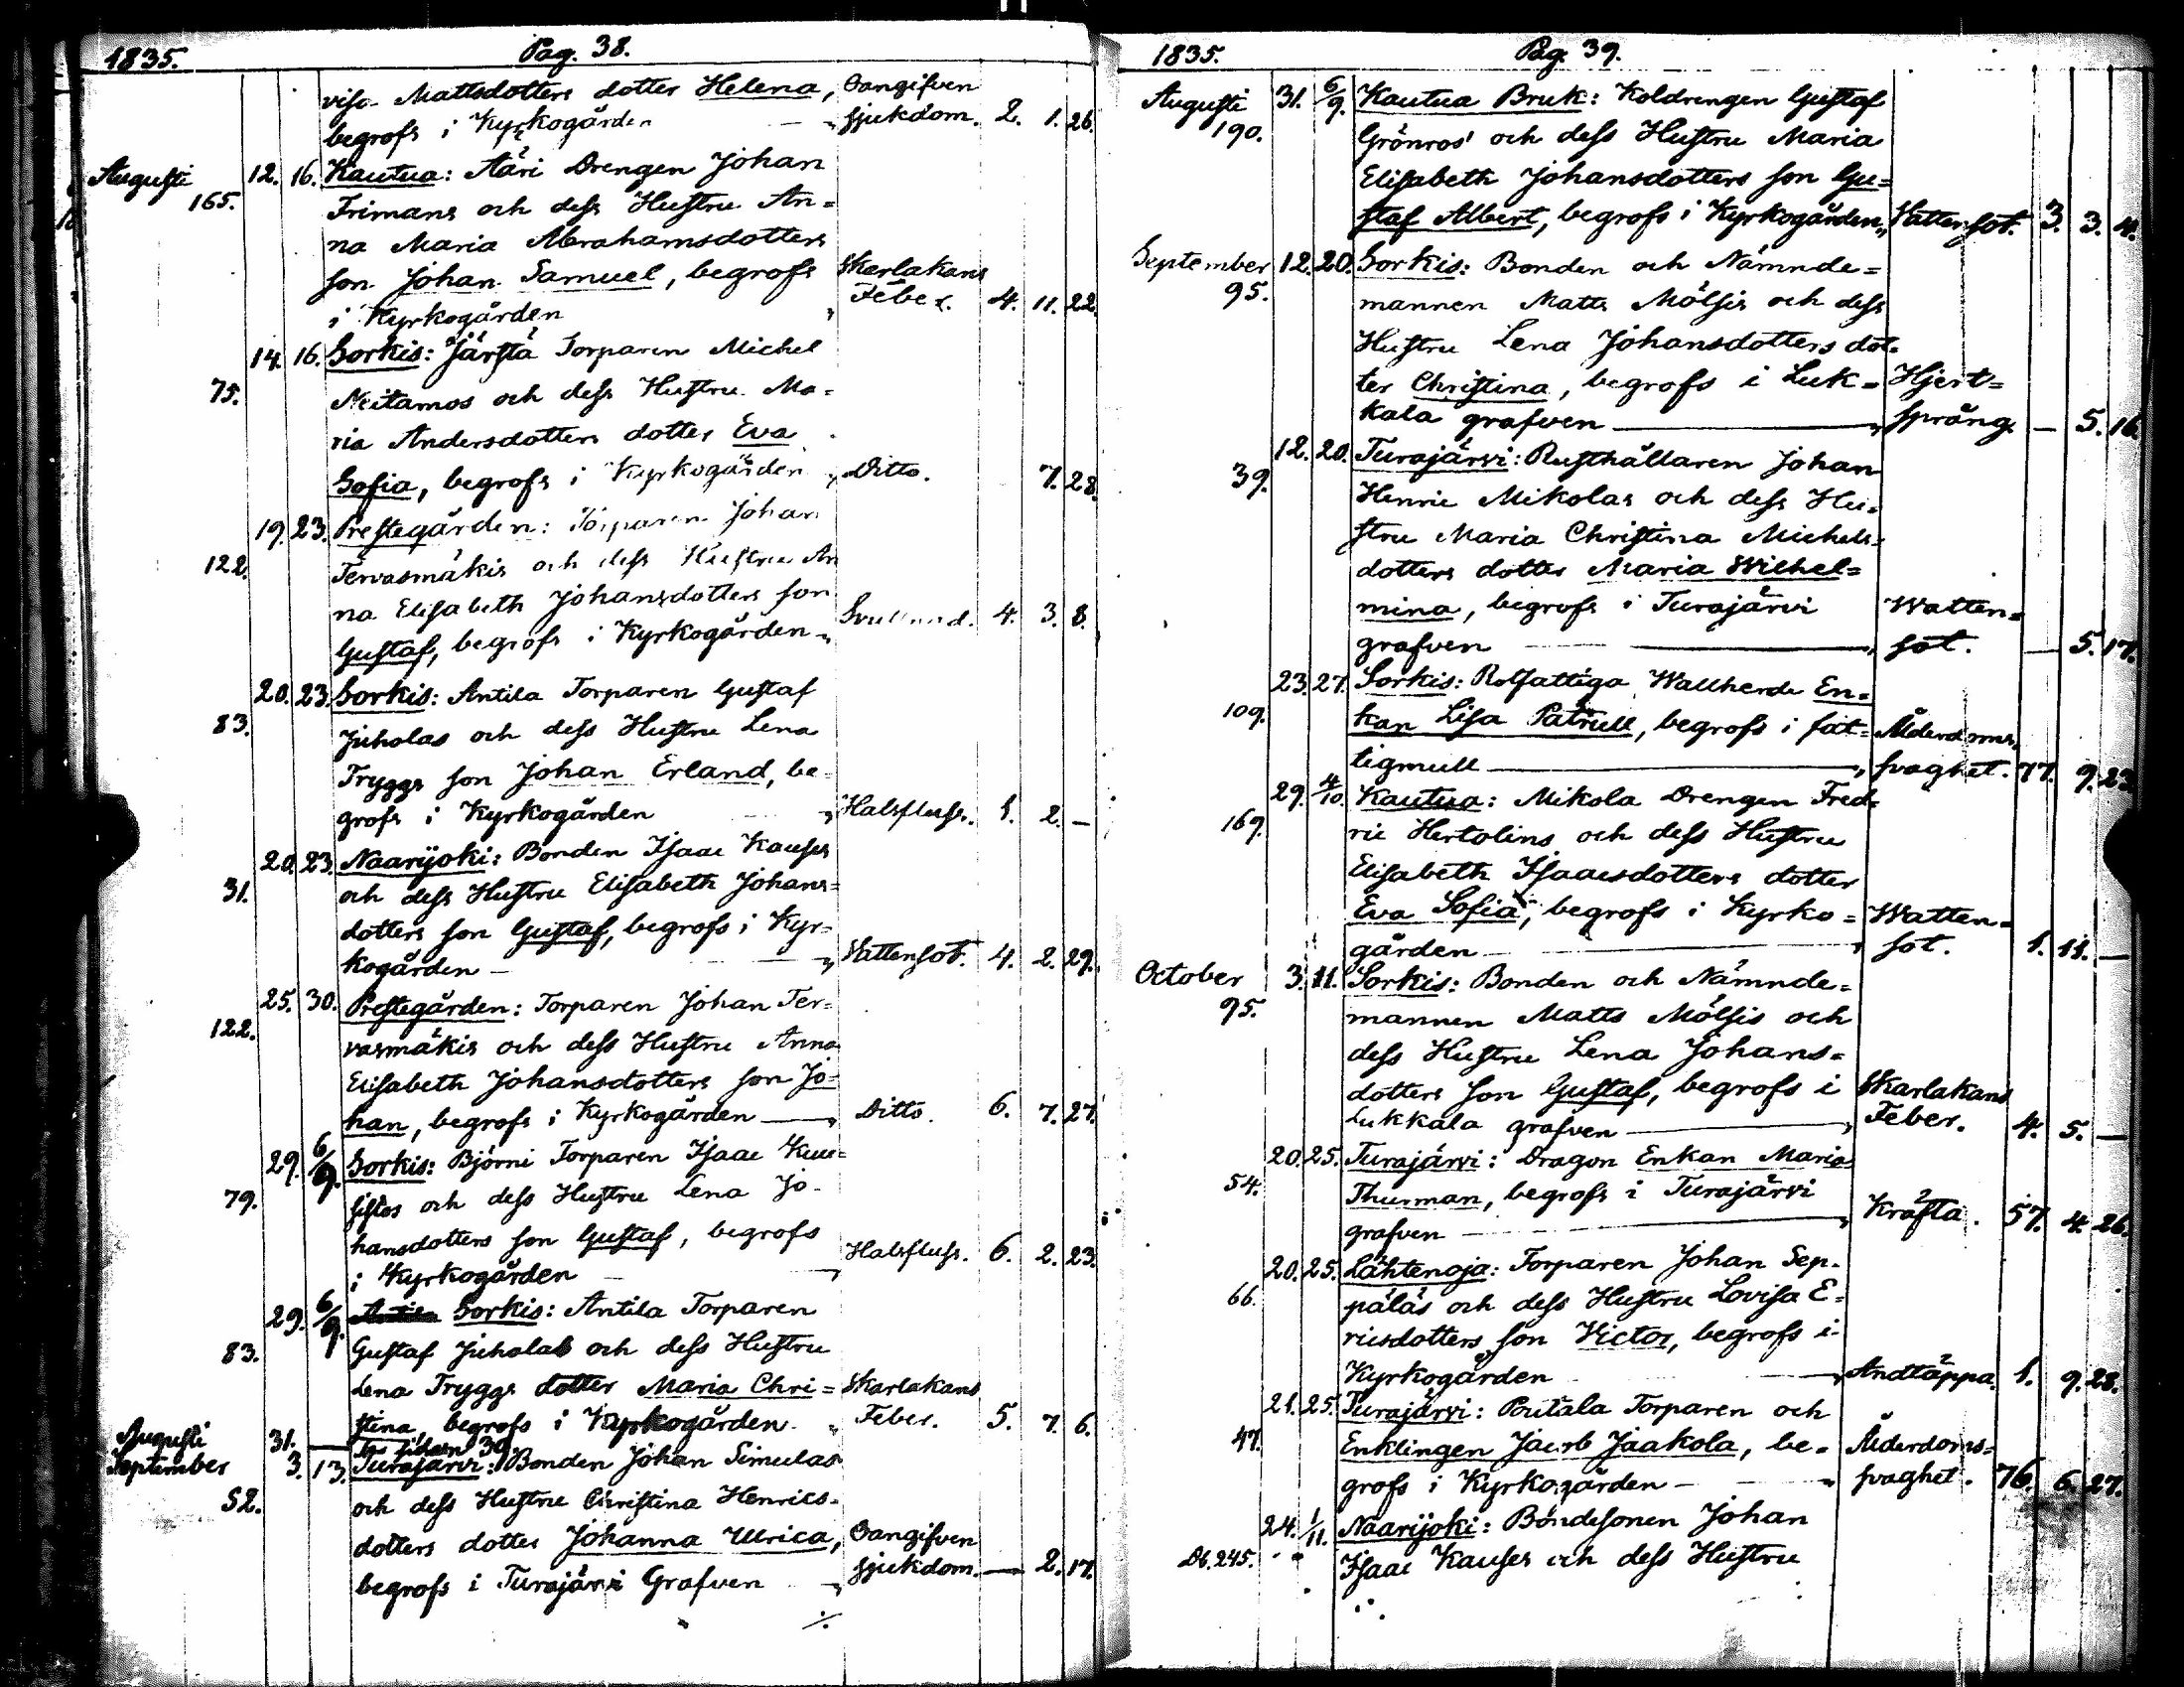 1835. Pag. 38.
viso Mattsdotters dotter Helena, Oangifven
begrofs i Kyrkogården — „ sjukdom. 2. 1. 26.
Augusti 12. 16. Kautua:Ääri Drengen Johan
165. Frimans och dess Hustru An=
na Maria Abrahamsdotters
son Johan Samuel, begrofs Skarlakans
i Kyrkogården „ Feber. 4. 11. 22.
14. 16. Sorkis: Järstä Torparen Michel
75. Neitamos och dess Hustru Ma=
ria Andersdotters dotter Eva
Sofia, begrofs i Kyrkogården „ Ditto. 7. 28.
19. 23. Prestegården: Torparen Johan
122. Tervasmäkis och dess Hustru An
na Elisabeth Johansdotters son
Gustaf, begrofs i Kyrkogården „ 4. 3. 8.
20. 23. Sorkis: Antila Torparen Gustaf
83. Juholas och dess Hustru Lena
Tryggs son Johan Erland, be=
grofs i Kyrkogården „ Halsfluss. 1. 2. —
20. 23. Naarijoki: Bonden Isaac Kauses
31. och dess Hustru Elisabeth Johans=
dotters son Gustaf, begrofs i Kyr=
kogården — „ Vattensot. 4. 2. 29.
25. 30. Prestegården: Torparen Johan Ter=
122. vasmäkis och dess Hustru Anna
Elisabeth Johansdotters son Jo=
han, begrofs i Kyrkogården — „ Ditto. 6. 7. 27.
29. 6/9. Sorkis: Björni Torparen Isaac Kuu=
79. sistos och dess Hustru Lena Jo=
hansdotters son Gustaf, begrofs
i Kyrkogården — „ Halsfluss. 6. 2. 23.
29. 6/9. Antila Sorkis: Antila Torparen
83. Gustaf Juholas och dess Hustru
Lena Tryggs dotter Maria Chri= Skarlakans
stina begrofs i Kyrkogården. „ Feber. 5. 7. 6.
Augusti 31. — sidan 39.
September 3. 13. Turajärvi: Bonden Johan Simulas
52. och dess Hustru Christina Henrics=
dotters dotter Johanna Ulrica, Oangifven
begrofs i Turajärvi Grafven „ sjukdom. — 2. 17.
·/.
1835. Pag. 39.
Augusti 31. 6/9. Kautua Bruk: Koldrengen Gustaf
190. Grönros' och dess Hustru Maria
Elisabeth Johansdotters son Gu=
staf Albert, begrofs i Kyrkogården „ Vattensot. 3. 3. 4.
September 12. 20. Sorkis: Bonden och Nämnde=
95. mannen Matts Mölsis och dess
Hustru Lena Johansdotters dot=
ter Christina, begrofs i Luk= Hjert=
kala grafven — „ språng. — 5. 16.
12. 20. Turajärvi: Rusthållaren Johan
39. Henric Mikolas och dess Hu=
stru Maria Christina Michels=
dotters dotter Maria Wilhel=
mina, begrofs i Turajärvi Watten=
grafven — „ sot. — 5. 17.
23. 27. Sorkis: Rotfattiga Wallherde En=
109. kan Lisa Patrull, begrofs i fat= Ålderdoms
tigmull — „ svaghet. 77. 9. 23.
29. 4/10. Kautua: Mikola Drengen Fred=
169. ric Hertolins och dess Hustru
Elisabeth Isaacsdotters dotter
Eva Sofia, begrofs i Kyrko= Watten=
gården — „ sot. 1. 11. —
October 3. 11. Sorkis: Bonden och Nämnde=
95. mannen Matts Mölsis och
dess Hustru Lena Johans=
dotters son Gustaf, begrofs i Skarlakans
Lukkala grafven — „ Feber. 4. 5. —
20. 25. Turajärvi: Dragon Enkan Maria
54. Thurman, begrofs i Turajärvi
grafven — „ Kräfta. 57. 4. 26.
20. 25. Lähtenoja: Torparen Johan Sep=
66. päläs och dess Hustru Lovisa E=
ricsdotters son Victor, begrofs i
Kyrkogården — „ Andtäppa. 1. 9. 28.
21. 25. Turajärvi: Poutala Torparen och
47. Enklingen Jacob Jaakola, be= Ålderdoms=
grofs i Kyrkogården — „ svaghet. 76. 6. 27.
24. 1/11. Naarijoki: Bondesonen Johan
Db. 245. Isaac Kauses och dess Hustru